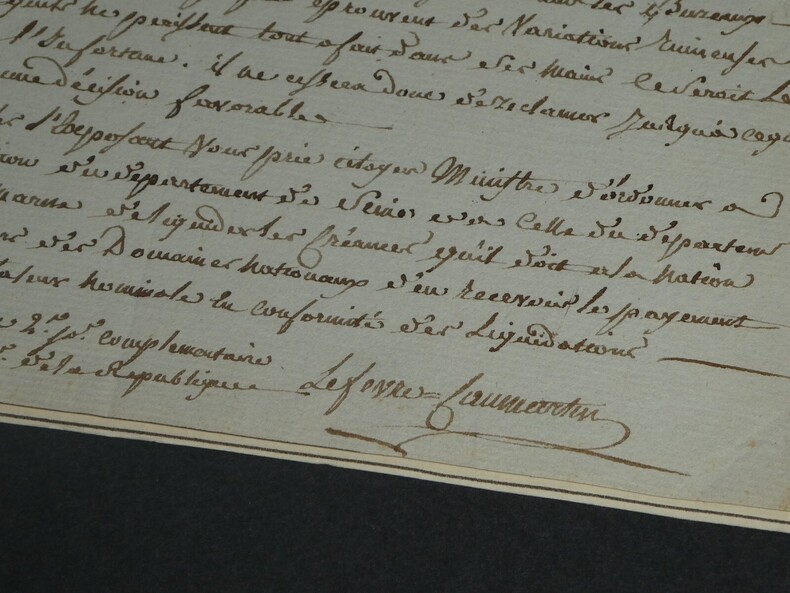 éprouvent des Variations ruineuses
ne périssent tout afait dans des mains ce seroit Le
l'Infortune. il ne cessera donc de réclamer Jusqu'à ce qu
une décision favorable
l'Exposant Vous prie citoyen Ministre d'ordonner a
du département de Seine et a Celle du départem
marne de liquider les Créances qu'il doit a la nation
des Domaines nationaux d'en recevoir le payement
Valeur nominale En conformité des Liquidations
2e. jo.r complementaire
de la Republique Lefevre=Caumartin